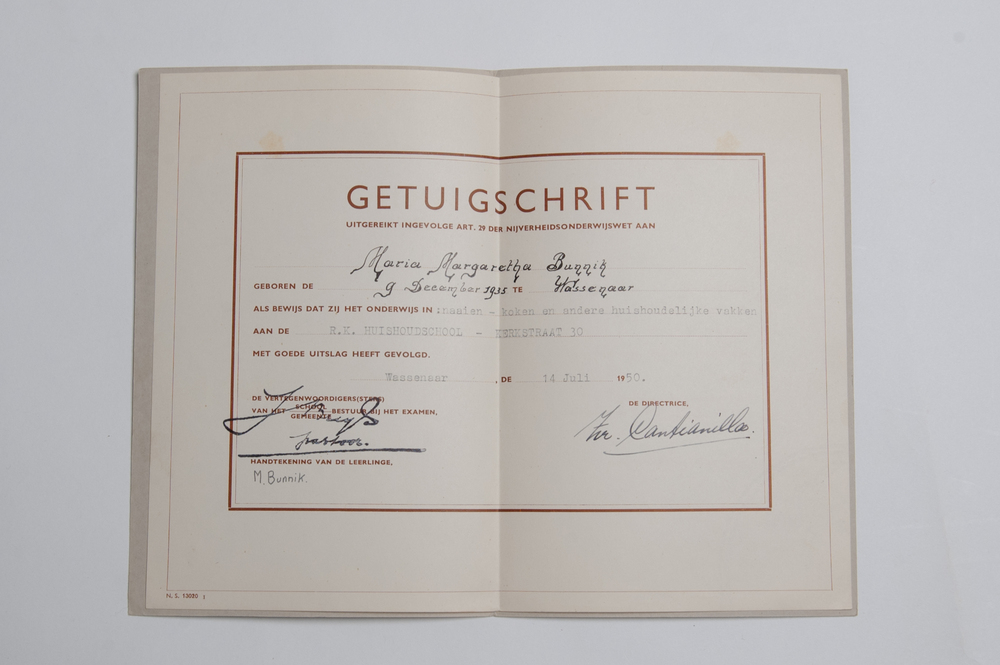 GETUIGSCHRIFT
UITGEREIKT INGEVOLGE ART. 29 DER NIJVERHEIDSONDERWIJSWET AAN
Maria Margaretha Bunnik
GEBOREN DE 9 December 1935 TE Wassenaar
ALS BEWIJS DAT ZIJ HET ONDERWIJS IN :naaien - koken en andere huishoudelijke vakken
AAN DE R.K. HUISHOUDSCHOOL - KERKSTRAAT 30
MET GOEDE UITSLAG HEEFT GEVOLGD.
Wassenaar , DE 14 Juli 1950.
DE VERTEGENWOORDIGERS(STERS)
VAN HET SCHOOL BESTUUR BIJ HET EXAMEN,
GEMEENTE
pastoor.
DE DIRECTRICE,
Zr. Cantianilla.
HANDTEKENING VAN DE LEERLINGE,
M. Bunnik.
N. S. 13020